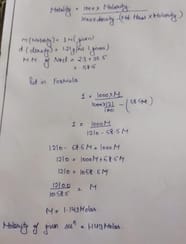 Molality = 1000 × Molarity
1000 × density - (Mol. Mass × Molarity)
M (Molality) = 1 M (given)
d (density) = 1.21 g mL⁻¹ (given)
M.M. of NaCl = 23 + 35.5
= 58.5
Put in Formula
1 = 1000 × M
1000 × 1.21 - (58.5 M)
1 = 1000 M
1210 - 58.5 M
1210 - 58.5 M = 1000 M
1210 = 1000 M + 58.5 M
1210 = 1058.5 M
= M
1058.5
M = 1.143 Molar
Molarity of given solⁿ = 1.143 Molar